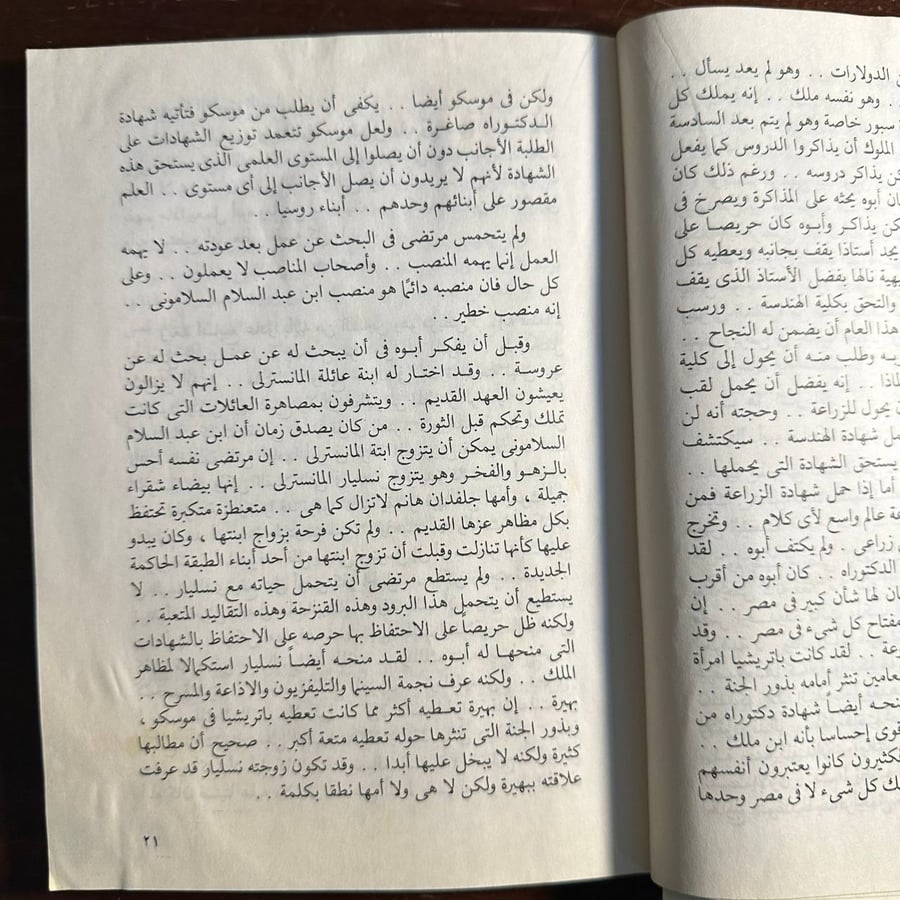 ن الدولارات . . وهو لم يعد يسأل . .
. . وهو نفسه ملك . . إنه يملك كل
سبور خاصة وهو لم يتم بعد السادسة
الملوك أن يذاكروا الدروس كما يفعل
كن يذاكر دروسه . . ورغم ذلك كان
ان أبوه يحثه على المذاكرة ويصرخ فى
كن يذاكر وأبوه كان حريصا على
يجد أستاذا يقف بجانبه ويعطيه كل
يهية نالها بفضل الأستاذ الذى يقف
والتحق بكلية الهندسة . . ورسب
هذا العام أن يضمن له النجاح . .
ـه وطلب منه أن يحول إلى كلية
لماذا . . إنه يفضل أن يحمل لقب
ن يحول للزراعة . . وحجته أنه لن
مل شهادة الهندسة . . سيكتشف
يستحق الشهادة التى يحملها . .
أما إذا حمل شهادة الزراعة فمن
عة عالم واسع لأى كلام . . وتخرج
زراعى . ولم يكتف أبوه . . لقد
الدكتوراه . . كان أبوه من أقرب
ان لها شأن كبير فى مصر . . إن
مفتاح كل شىء فى مصر . . وقد
عة . . لقد كانت باتريشيا امرأة
لعامين تنثر أمامه بذور الجنة . .
نحه أيضاً شهادة دكتوراه من
قوى إحساسا بأنه ابن ملك . .
لكثيرون كانوا يعتبرون أنفسهم
ك كل شىء لا فى مصر وحدها
ولكن فى موسكو أيضا . . يكفى أن يطلب من موسكو فتأتيه شهادة
الدكتوراه صاغرة . . ولعل موسكو تتعمد توزيع الشهادات على
الطلبة الأجانب دون أن يصلوا إلى المستوى العلمى الذى يستحق هذه
الشهادة لأنهم لا يريدون أن يصل الأجانب إلى أى مستوى . . العلم
مقصور على أبنائهم وحدهم . . أبناء روسيا . .
ولم يتحمس مرتضى فى البحث عن عمل بعد عودته . . لا يهمه
العمل إنما يهمه المنصب . . وأصحاب المناصب لا يعملون . . وعلى
كل حال فان منصبه دائمًا هو منصب ابن عبد السلام السلامونى . .
إنه منصب خطير . .
وقبل أن يفكر أبوه فى أن يبحث له عن عمل بحث له عن
عروسة . . وقد اختار له ابنة عائلة المانسترلى . . إنهم لا يزالون
يعيشون العهد القديم . . ويتشرفون بمصاهرة العائلات التى كانت
تملك وتحكم قبل الثورة . . من كان يصدق زمان أن ابن عبد السلام
السلامونى يمكن أن يتزوج ابتة المانسترلى . . إن مرتضى نفسه أحس
بالزهو والفخر وهو يتزوج نسليار المانسترلى . . إنها بيضاء شقراء
جميلة ، وأمها جلفدان هانم لاتزال كما هى . . متعنطزة متكبرة تحتفظ
بكل مظاهر عزها القديم . . ولم تكن فرحة بزواج ابنتها ، وكان يبدو
عليها كأنها تنازلت وقبلت أن تزوج ابنتها من أحد أبناء الطبقة الحاكمة
الجديدة . . ولم يستطع مرتضى أن يتحمل حياته مع نسليار . . لا
يستطيع أن يتحمل هذا البرود وهذه القنزحة وهذه التقاليد المتعبة . .
ولكنه ظل حريصاً على الاحتفاظ بها حرصه على الاحتفاظ بالشهادات
التى منحها له أبوه . . لقد منحه أيضاً نسليار استكمالا لمظاهر
الملك . . ولكنه عرف نجمة السينما والتليفزيون والاذاعة والمسرح . .
بهيرة . . إن بهيرة تعطيه أكثر مما كانت تعطيه باتريشيا فى موسكو ،
وبذور الجنة التى تنثرها حوله تعطيه متعة أكبر . . صحيح أن مطالبها
كثيرة ولكنه لا يبخل عليها أبدا . . وقد تكون زوجته نسليار قد عرفت
علاقته ببهيرة ولكن لا هى ولا أمها نطقا بكلمة . .
٢١